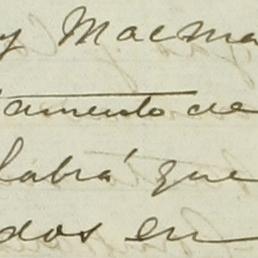 y Macma
tamento de
labrá que
dos en